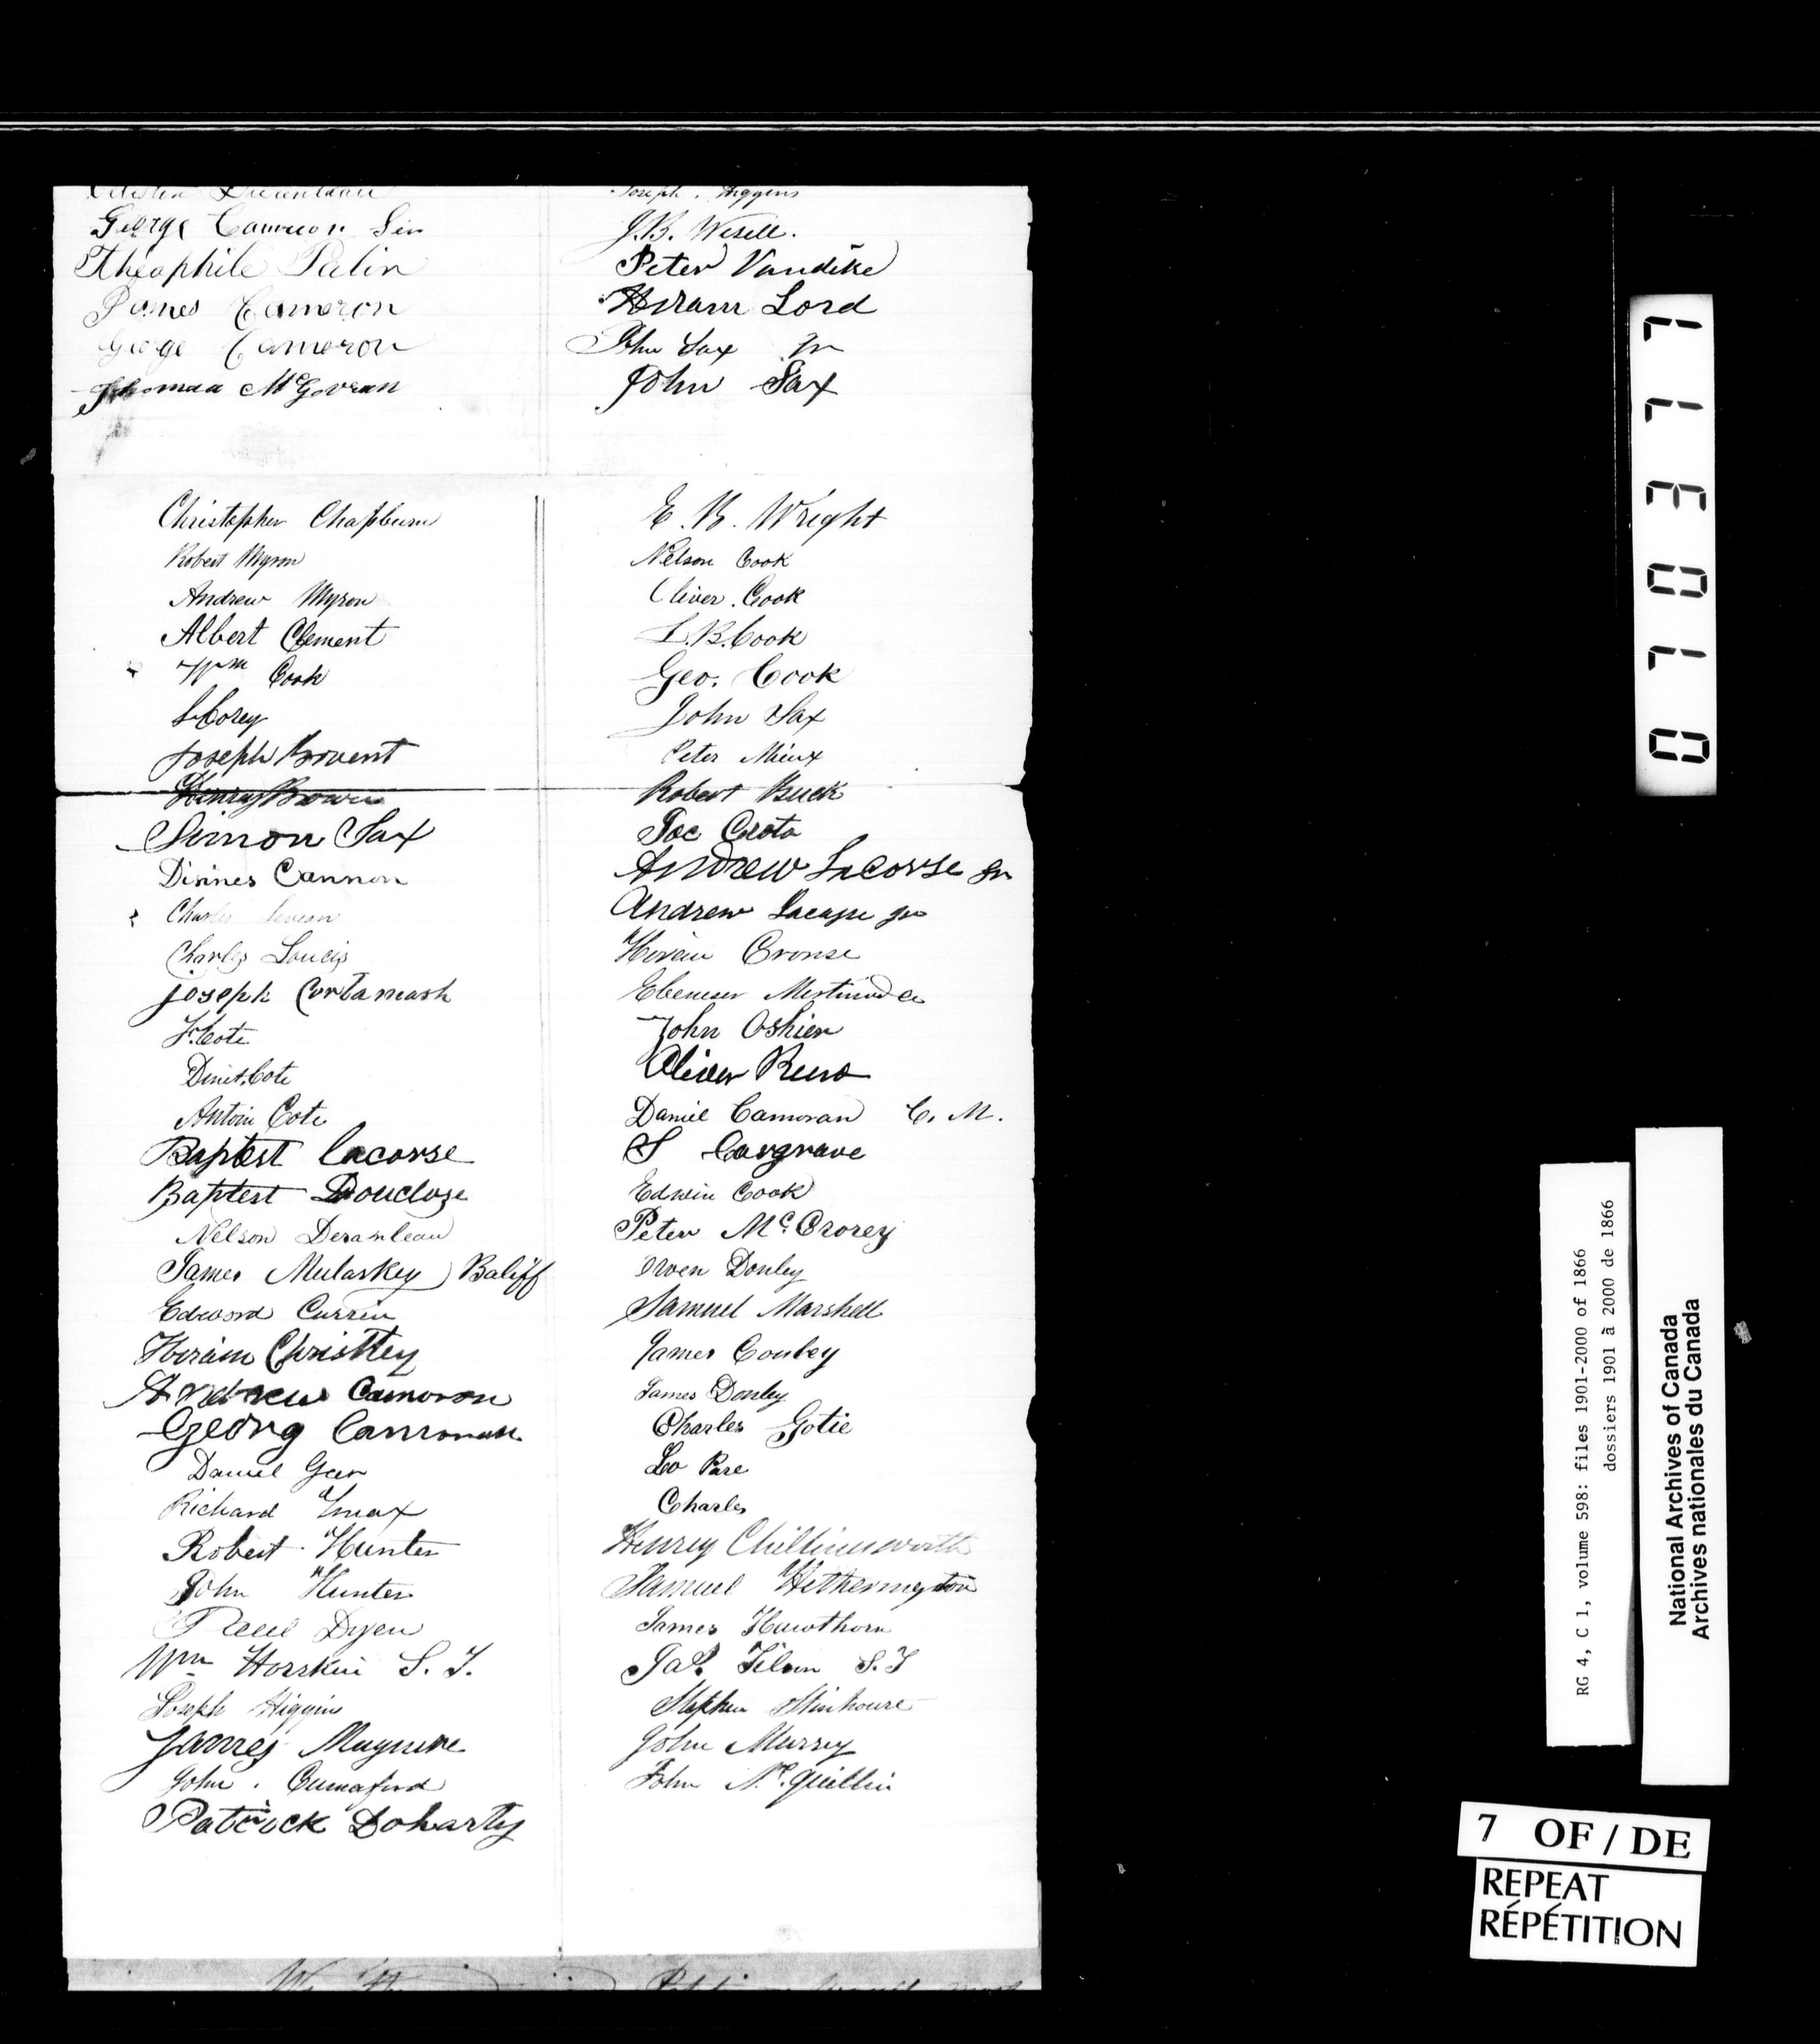 Joseph Higgins
George Cameron Sen
Theophile Patin
James Cameron
George Cameron
Thomas McGovran
J.B. Wesell.
Peter Vandike
Hiram Lord
John Sax Jn
John Sax
Christopher Chapburn
Robert Myron
Andrew Myron
Albert Clement
Wm Cook
Corey
Joseph Brouent
Henry Brown
Simon Sax
Cannon
Charles
Charles Loucis
Joseph Cortamash
F. Cote
Cote
Antoin Cote
Baptest Lacorse
Baptest Douclose
Nelson Deranleau
James Mularkey Baliff
Edward Currin
Hiram Christtey
Andrew Camoron
Georg
Daniel Geer
Richard
Robert Hunter
John Hunter
Dyen
Wm Horskin S. T.
Joseph Higgins
James Maguire
John
Patrick Doharty
E. B. Wright
Nelson Cook
Oliver Cook
L. B. Cook
Geo. Cook
John Sax
Peter Mieux
Robert Buck
Joe Crota
Andrew Lacorse Sn
Andrew
Hiram Cronse
Ebenezer
John Oshier
Oliver
Daniel Camoran C. M.
S Cosgrave
Edwin Cook
Peter Mc Crorey
Owen Donley
Samuel Marshell
James Conley
James Donley
Charles Gotie
Leo Pare
Charles
Henry
Samuel Hetherington
James Hawthorn
Jas. S. T
Stephen
John Murrey
John Mc Quillin
0710377
RG 4, C 1, volume 598: files 1901-2000 of 1866
dossiers 1901 à 2000 de 1866
National Archives of Canada
Archives nationales du Canada
7 OF / DE
REPEAT
RÉPÉTITION